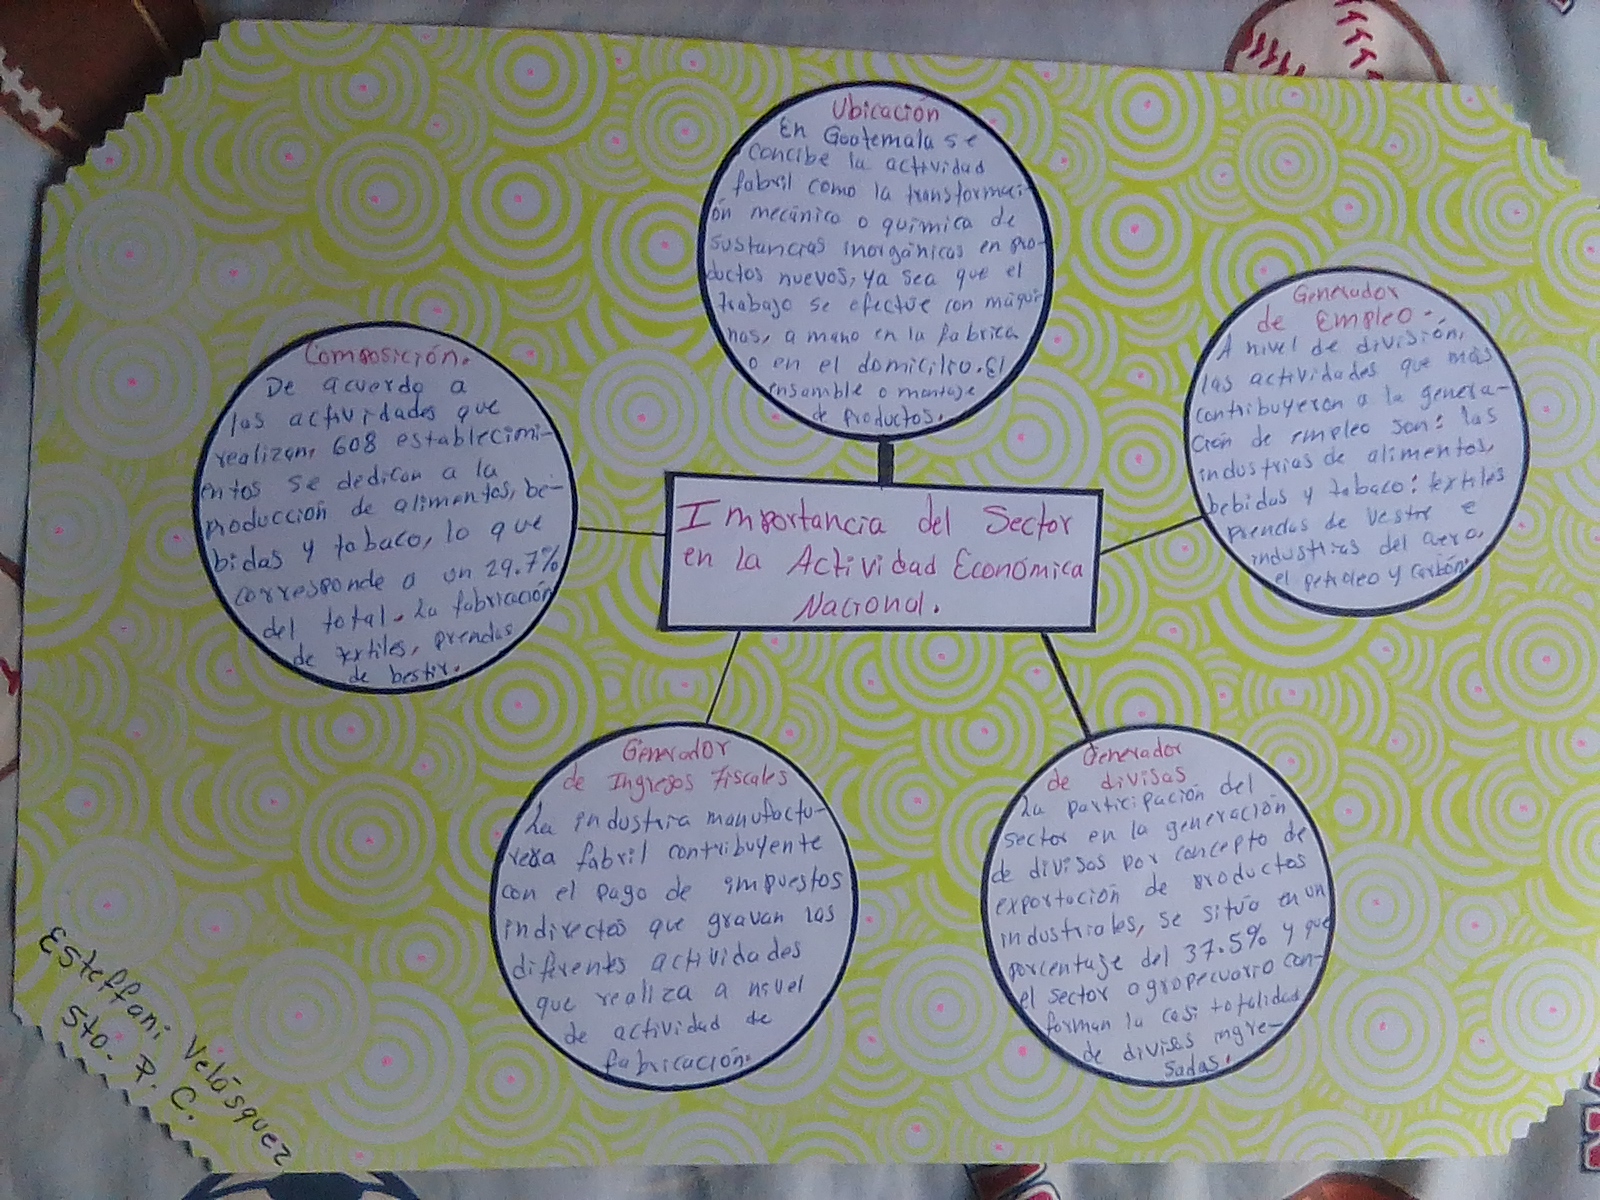 Ubicación
En Guatemala se
concibe la actividad
fabril como la transformaci-
ón mecánica o química de
sustancias inorgánicas en pro-
ductos nuevos, ya sea que el
trabajo se efectúe con máqui-
nas, a mano en la fabrica
o en el domicilio. El
ensamble o montaje
de productos.
Generador
de Empleo.
A nivel de división,
las actividades que más
contribuyeron a la genera-
ción de empleo son: las
industrias de alimentos,
bebidas y tabaco: textiles
prendas de vestir e
industrias del
el petroleo y carbón.
Composición.
De acuerdo a
las actividades que
realizan, 608 establecimi-
entos se dedican a la
producción de alimentos, be-
bidas y tabaco, lo que
corresponde a un 29.7%
del total. La fabricación
de textiles, prendas
de bestir.
Importancia del Sector
en la Actividad Económica
Nacional.
Generador
de Ingresos Fiscales
La industria manufactu-
rera fabril contribuyente
con el pago de impuestos
indirectos que gravan las
diferentes actividades
que realiza a nivel
de actividad de
fabricación.
Generador
de divisas
La participación del
sector en la generación
de divisas por concepto de
exportación de productos
industriales, se sitúa en un
porcentaje del 37.5% y que
el sector agropecuario con-
forman la casi totalidad
de divisas ingre-
sadas.
Esteffani Velásquez
5to. P. C.